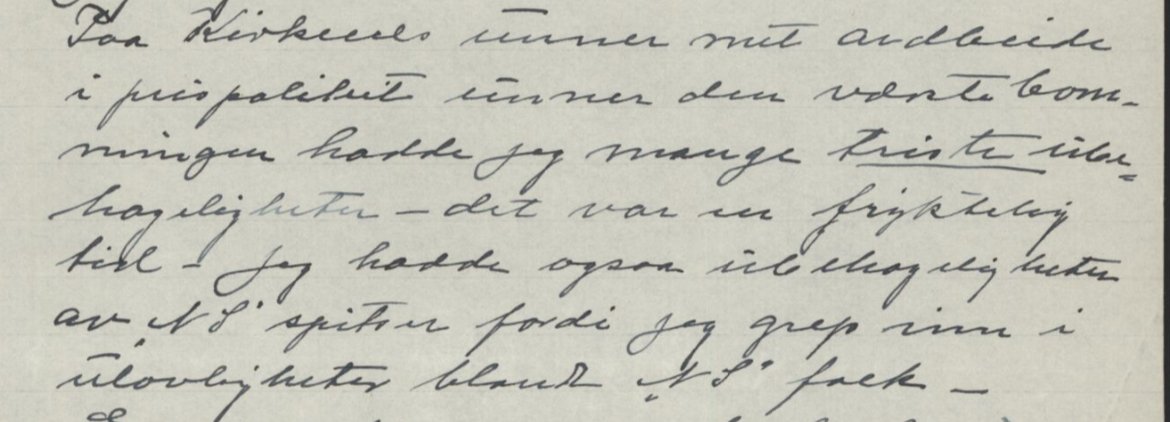 Paa Kirkenes unner mit ardbeide
i prispolitiet unner den værste bom-
ningen hadde jeg mange triste ube-
hageligheter – det var en fryktelig
tid – jeg hadde ogsaa ubehageligheter
av „NS" spitser fordi jeg grep inn i
ulovligheter blandt „NS" folk –